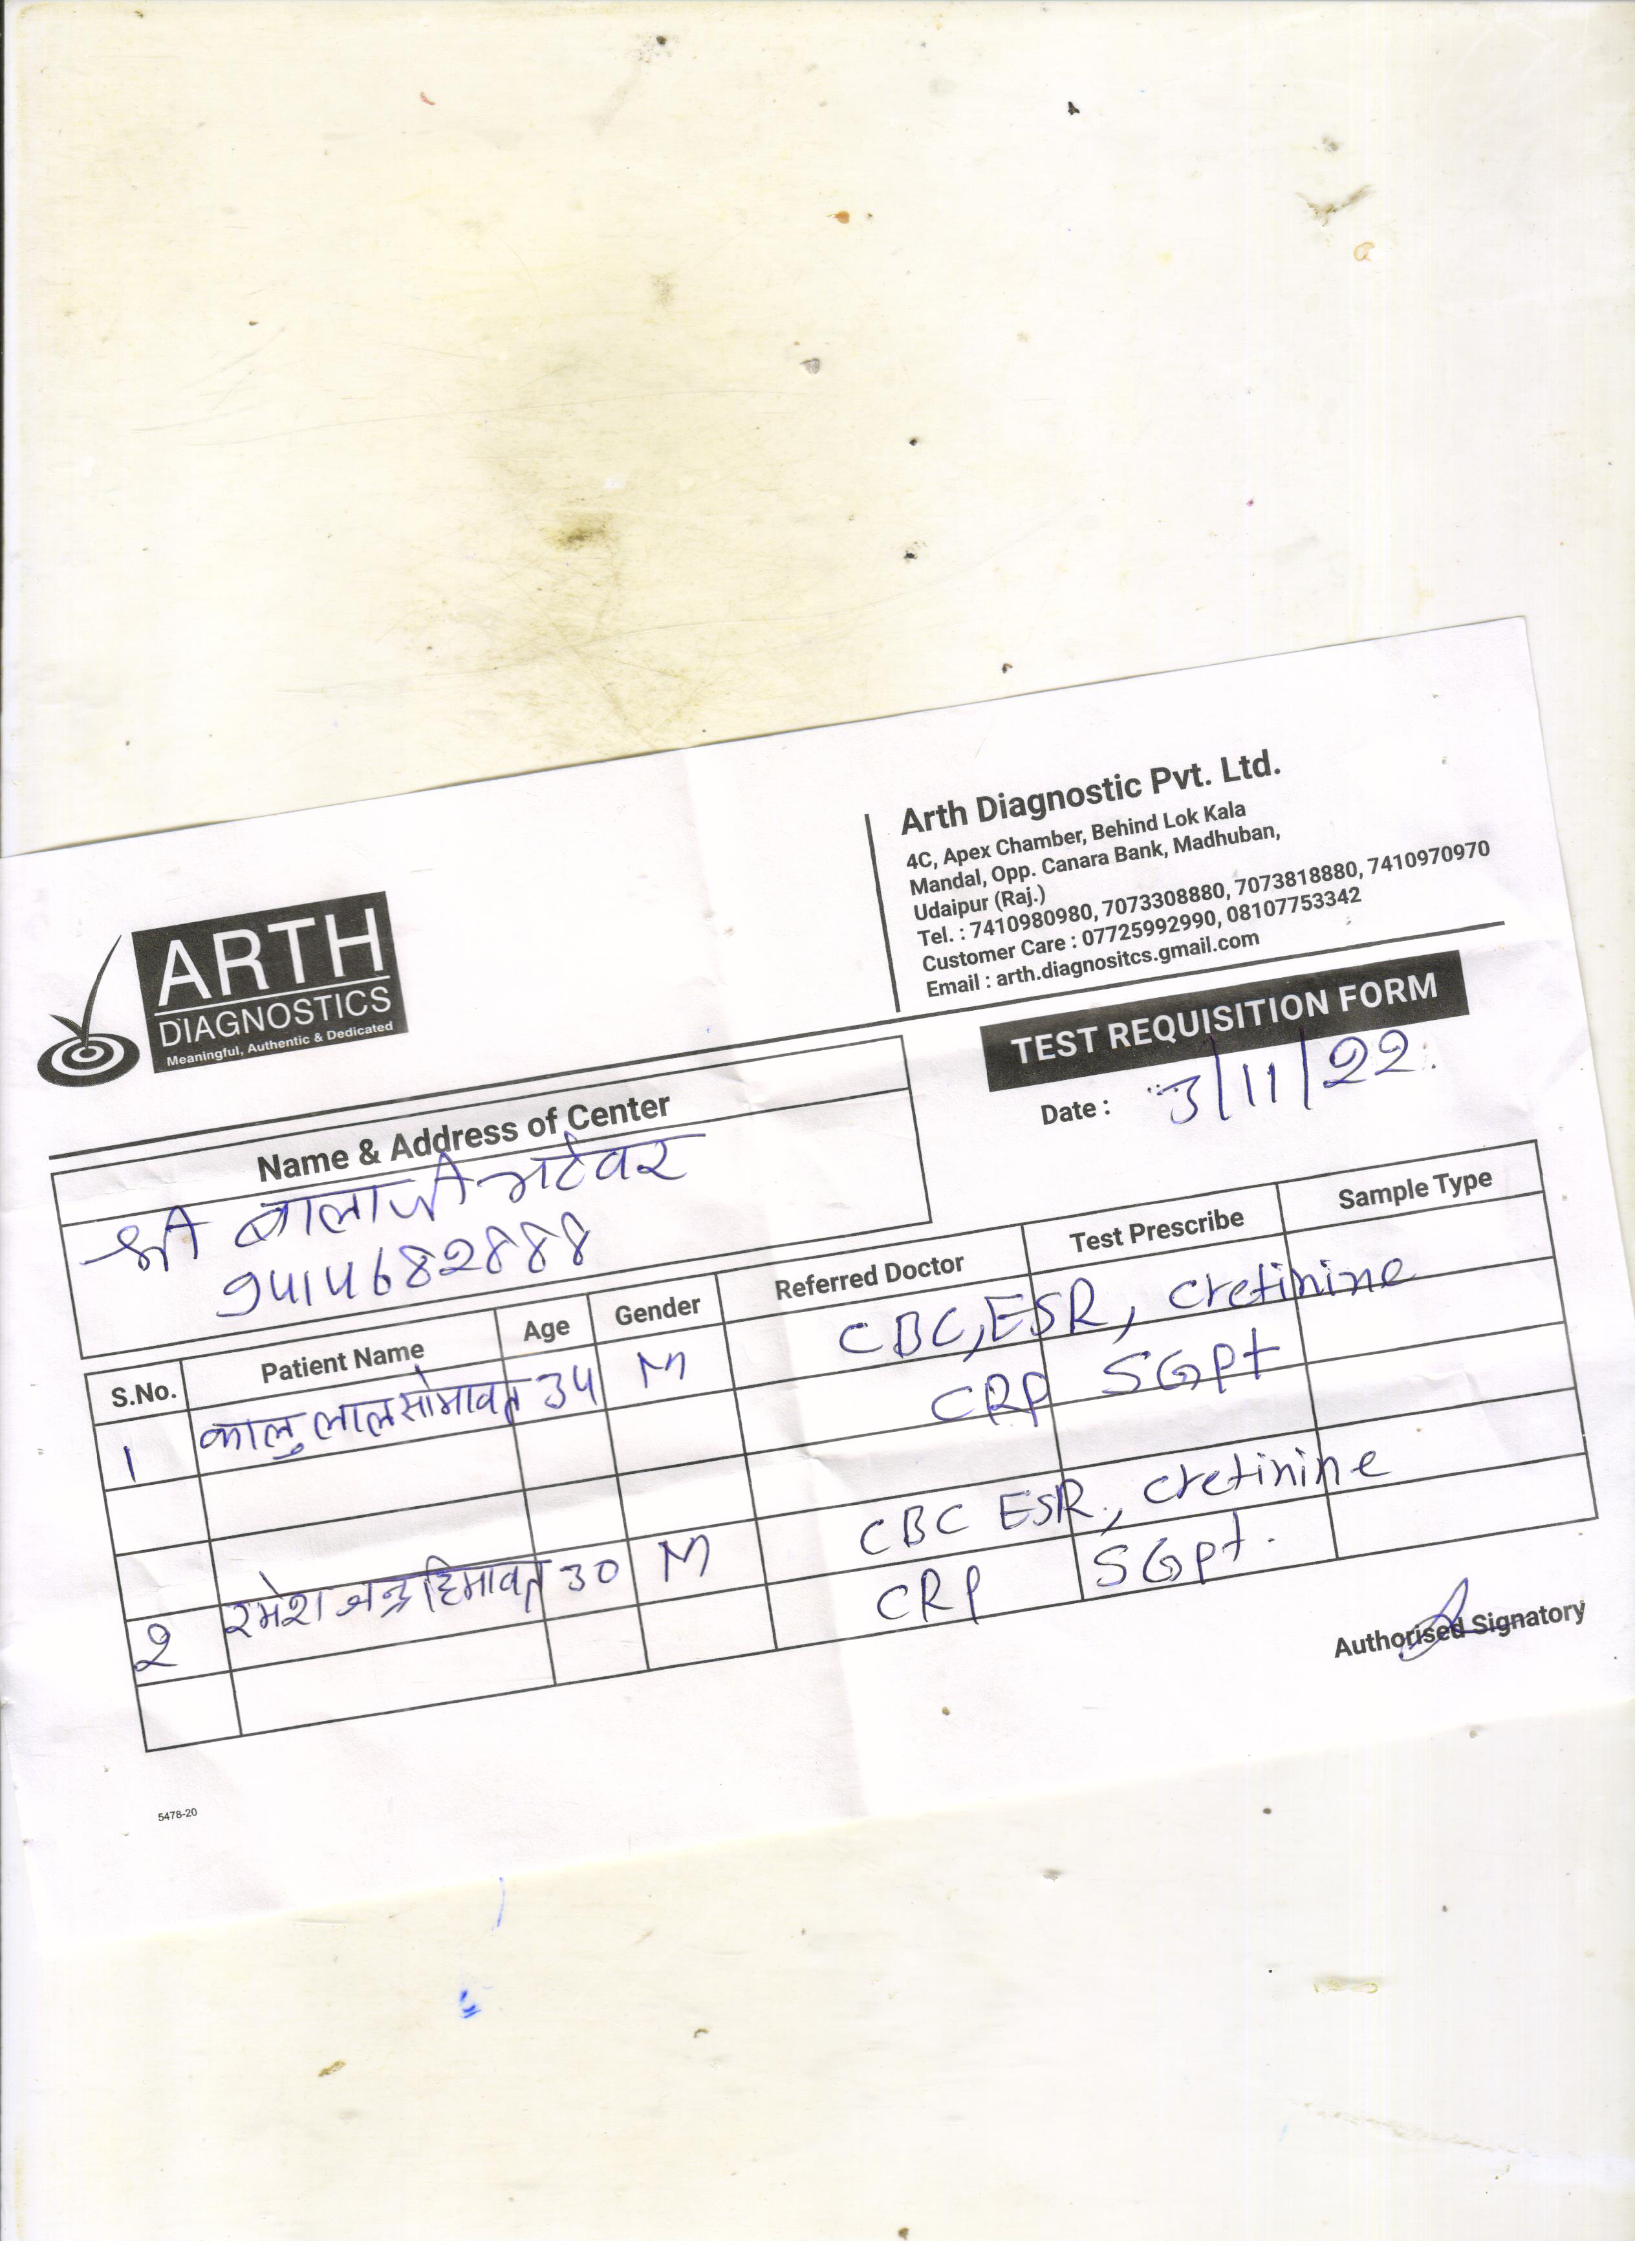 ARTH
DIAGNOSTICS
Meaningful, Authentic & Dedicated
Arth Diagnostic Pvt. Ltd.
4C, Apex Chamber, Behind Lok Kala
Mandal, Opp. Canara Bank, Madhuban,
Udaipur (Raj.)
Tel. : 7410980980, 7073308880, 7073818880, 7410970970
Customer Care : 07725992990, 08107753342
Email : arth.diagnositcs.gmail.com
TEST REQUISITION FORM
Date : 3/11/22
Name & Address of Center
श्री बालाजी भटेवर
9414682888
S.No. Patient Name Age Gender Referred Doctor Test Prescribe Sample Type
1 कालु लाल सोमावत 34 M CBC, ESR, cretinine
CRP SGPt
2 रमेश चन्द्र हिमावत 30 M CBC ESR, cretinine
CRP SGPt.
Authorised Signatory
5478-20